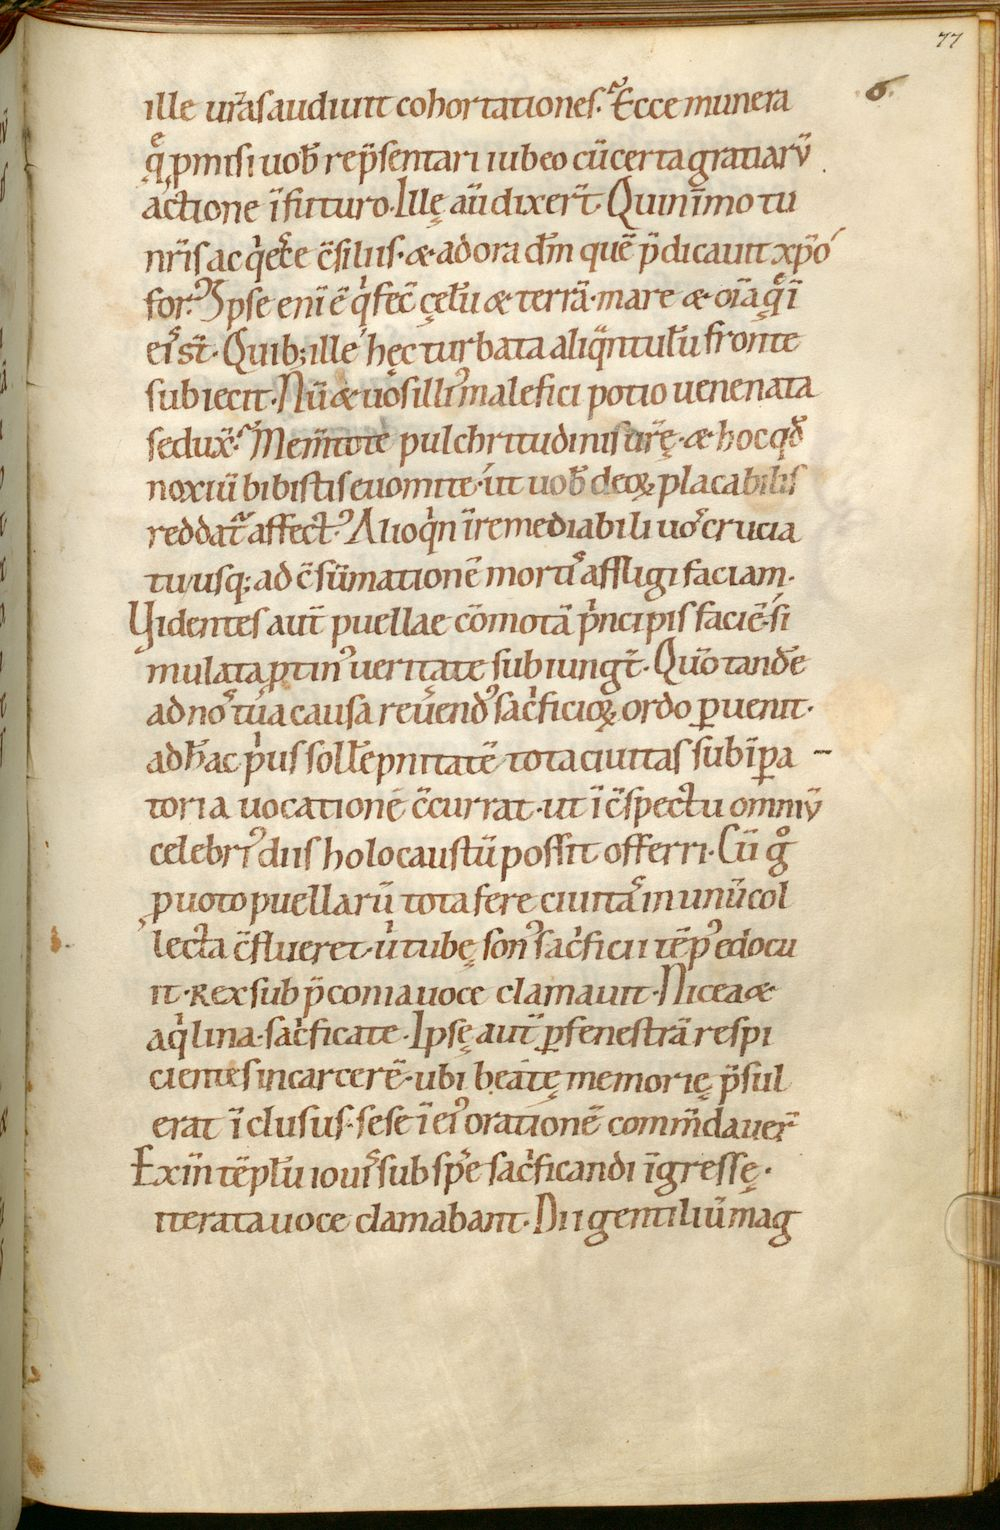 77
6.
ille ur̃as audiuit cohortationes. Ecce munera
q̨ͤ p̱misi uob̄ rep̄sentari iubeo cū certa gratiarū
actione ī futuro. Illę aū dixer̄t. Quinīmo tu
nr̄is acq̇esce c̄siliis. & adora dn̄m quē p̄dicauit xp̄o
for᷒. Ipse enī ē q̇ fec̄ cęlū & terrā. mare & oīa q̨ͤ ī
eis st̄. Quib; ille hęc turbata aliq̄ntulū fronte
subiecit. Nū & uos illi᷒ malefici potio uenenata
sedux̄. Mem̄tote pulchritudinis ur̄ę. & hoc qđ
noxiū bibistis euomite. ut uob̄ deoꝝ placabilis
reddat᷑ affect᷒. Alioq̇n īremediabili uos crucia
tu usq; ad c̄sūmationē mortis affligi faciam.
Videntes aut̄ puellae cōmotā ṗncipis faciē. si
mulata p̱tin᷒ ueritate subiungt̄. Quō tandē
ad nos tua causa reuerend᷒ saċficioꝝ ordo ꝑuenit.
ad hāc ṗus sollēpnitatē tota ciuitas sub īꝑa
toria uocatione c̄currat. ut ī c̄spectu omniū
celebri᷒ diis holocaustū possit offerri. Cū gͦ
p̱ uoto puellarū tota fere ciuitas in unū col
lecta c̄flueret. u̇ tubę son᷒ saċficii tēp᷒ edocu
it. Rex sub p̄conia uoce clamauit. Nicea &
aq̇lina. saċficate. Ipsę aut̄ ꝑ fenestrā respi
cientes in carcerē. ubi beatę memorię p̄sul
erat īclusus. sese ī ei᷒ orationē comm̄dauer̄
Exin tēplū iouis sub spe saċficandi īgressę.
iterata uoce clamabant. Dii gentiliū mag